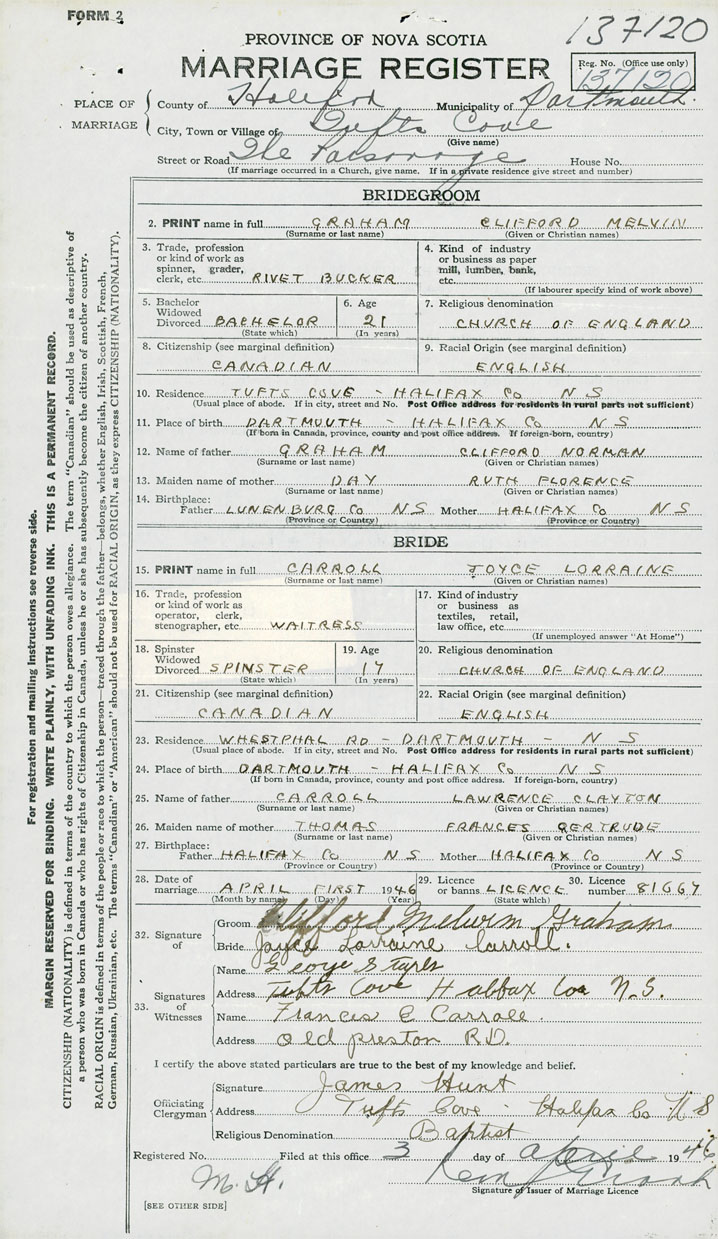 FORM 2
137120
PROVINCE OF NOVA SCOTIA
MARRIAGE REGISTER
Reg. No. (Office use only)
137120
PLACE OF MARRIAGE
County of Halifax Municipality of Dartmouth
City, Town or Village of Tufts Cove
(Give name)
Street or Road The Parsonage House No.
(If marriage occurred in a Church, give name. If in a private residence give street and number)
BRIDEGROOM
2. PRINT name in full GRAHAM CLIFFORD MELVIN
(Surname or last name) (Given or Christian names)
3. Trade, profession or kind of work as spinner, grader, clerk, etc. RIVET BUCKER
4. Kind of industry or business as paper mill, lumber, bank, etc.
(If labourer specify kind of work above)
5. Bachelor Widowed Divorced BACHELOR
(State which)
6. Age 21
(In years)
7. Religious denomination
CHURCH OF ENGLAND
8. Citizenship (see marginal definition)
CANADIAN
9. Racial Origin (see marginal definition)
ENGLISH
10. Residence TUFTS COVE - HALIFAX Co N S
(Usual place of abode. If in city, street and No. Post Office address for residents in rural parts not sufficient)
11. Place of birth DARTMOUTH - HALIFAX Co N S
(If born in Canada, province, county and post office address. If foreign-born, country)
12. Name of father GRAHAM CLIFFORD NORMAN
(Surname or last name) (Given or Christian names)
13. Maiden name of mother DAY RUTH FLORENCE
(Surname or last name) (Given or Christian names)
14. Birthplace:
Father LUNENBURG Co N S Mother HALIFAX Co N S
(Province or Country) (Province or Country)
BRIDE
15. PRINT name in full CARROLL JOYCE LORRAINE
(Surname or last name) (Given or Christian names)
16. Trade, profession or kind of work as operator, clerk, stenographer, etc. WAITRESS
17. Kind of industry or business as textiles, retail, law office, etc.
(If unemployed answer "At Home")
18. Spinster Widowed Divorced SPINSTER
(State which)
19. Age 17
(In years)
20. Religious denomination
CHURCH OF ENGLAND
21. Citizenship (see marginal definition)
CANADIAN
22. Racial Origin (see marginal definition)
ENGLISH
23. Residence WHESTPHAL RD - DARTMOUTH - N S
(Usual place of abode. If in city, street and No. Post Office address for residents in rural parts not sufficient)
24. Place of birth DARTMOUTH - HALIFAX Co N S
(If born in Canada, province, county and post office address. If foreign-born, country)
25. Name of father CARROLL LAWRENCE CLAYTON
(Surname or last name) (Given or Christian names)
26. Maiden name of mother THOMAS FRANCES GERTRUDE
(Surname or last name) (Given or Christian names)
27. Birthplace:
Father HALIFAX Co N S Mother HALIFAX Co N S
(Province or Country) (Province or Country)
28. Date of marriage APRIL FIRST 1946
(Month by name) (Day) (Year)
29. Licence or banns LICENCE
(State which)
30. Licence number 81667
32. Signature of
Groom Clifford Melvin Graham
Bride Joyce Lorraine Carroll.
33. Signatures of Witnesses
Name George
Address Tufts Cove Halifax Co N.S.
Name Frances E Carroll
Address Old preston RD.
I certify the above stated particulars are true to the best of my knowledge and belief.
Officiating Clergyman
Signature James Hunt
Address Tufts Cove - Halifax Co N S
Religious Denomination Baptist
Registered No. Filed at this office 3 day of April 1946
M. H.
Signature of Issuer of Marriage Licence
[SEE OTHER SIDE]
For registration and mailing instructions see reverse side.
MARGIN RESERVED FOR BINDING. WRITE PLAINLY, WITH UNFADING INK. THIS IS A PERMANENT RECORD.
CITIZENSHIP (NATIONALITY) is defined in terms of the country to which the person owes allegiance. The term "Canadian" should be used as descriptive of
a person who was born in Canada or who has rights of Citizenship in Canada, unless he or she has subsequently become the citizen of another country.
RACIAL ORIGIN is defined in terms of the people or race to which the person—traced through the father—belongs, whether English, Irish, Scottish, French,
German, Russian, Ukrainian, etc. The terms "Canadian" or "American" should not be used for RACIAL ORIGIN, as they express CITIZENSHIP (NATIONALITY).